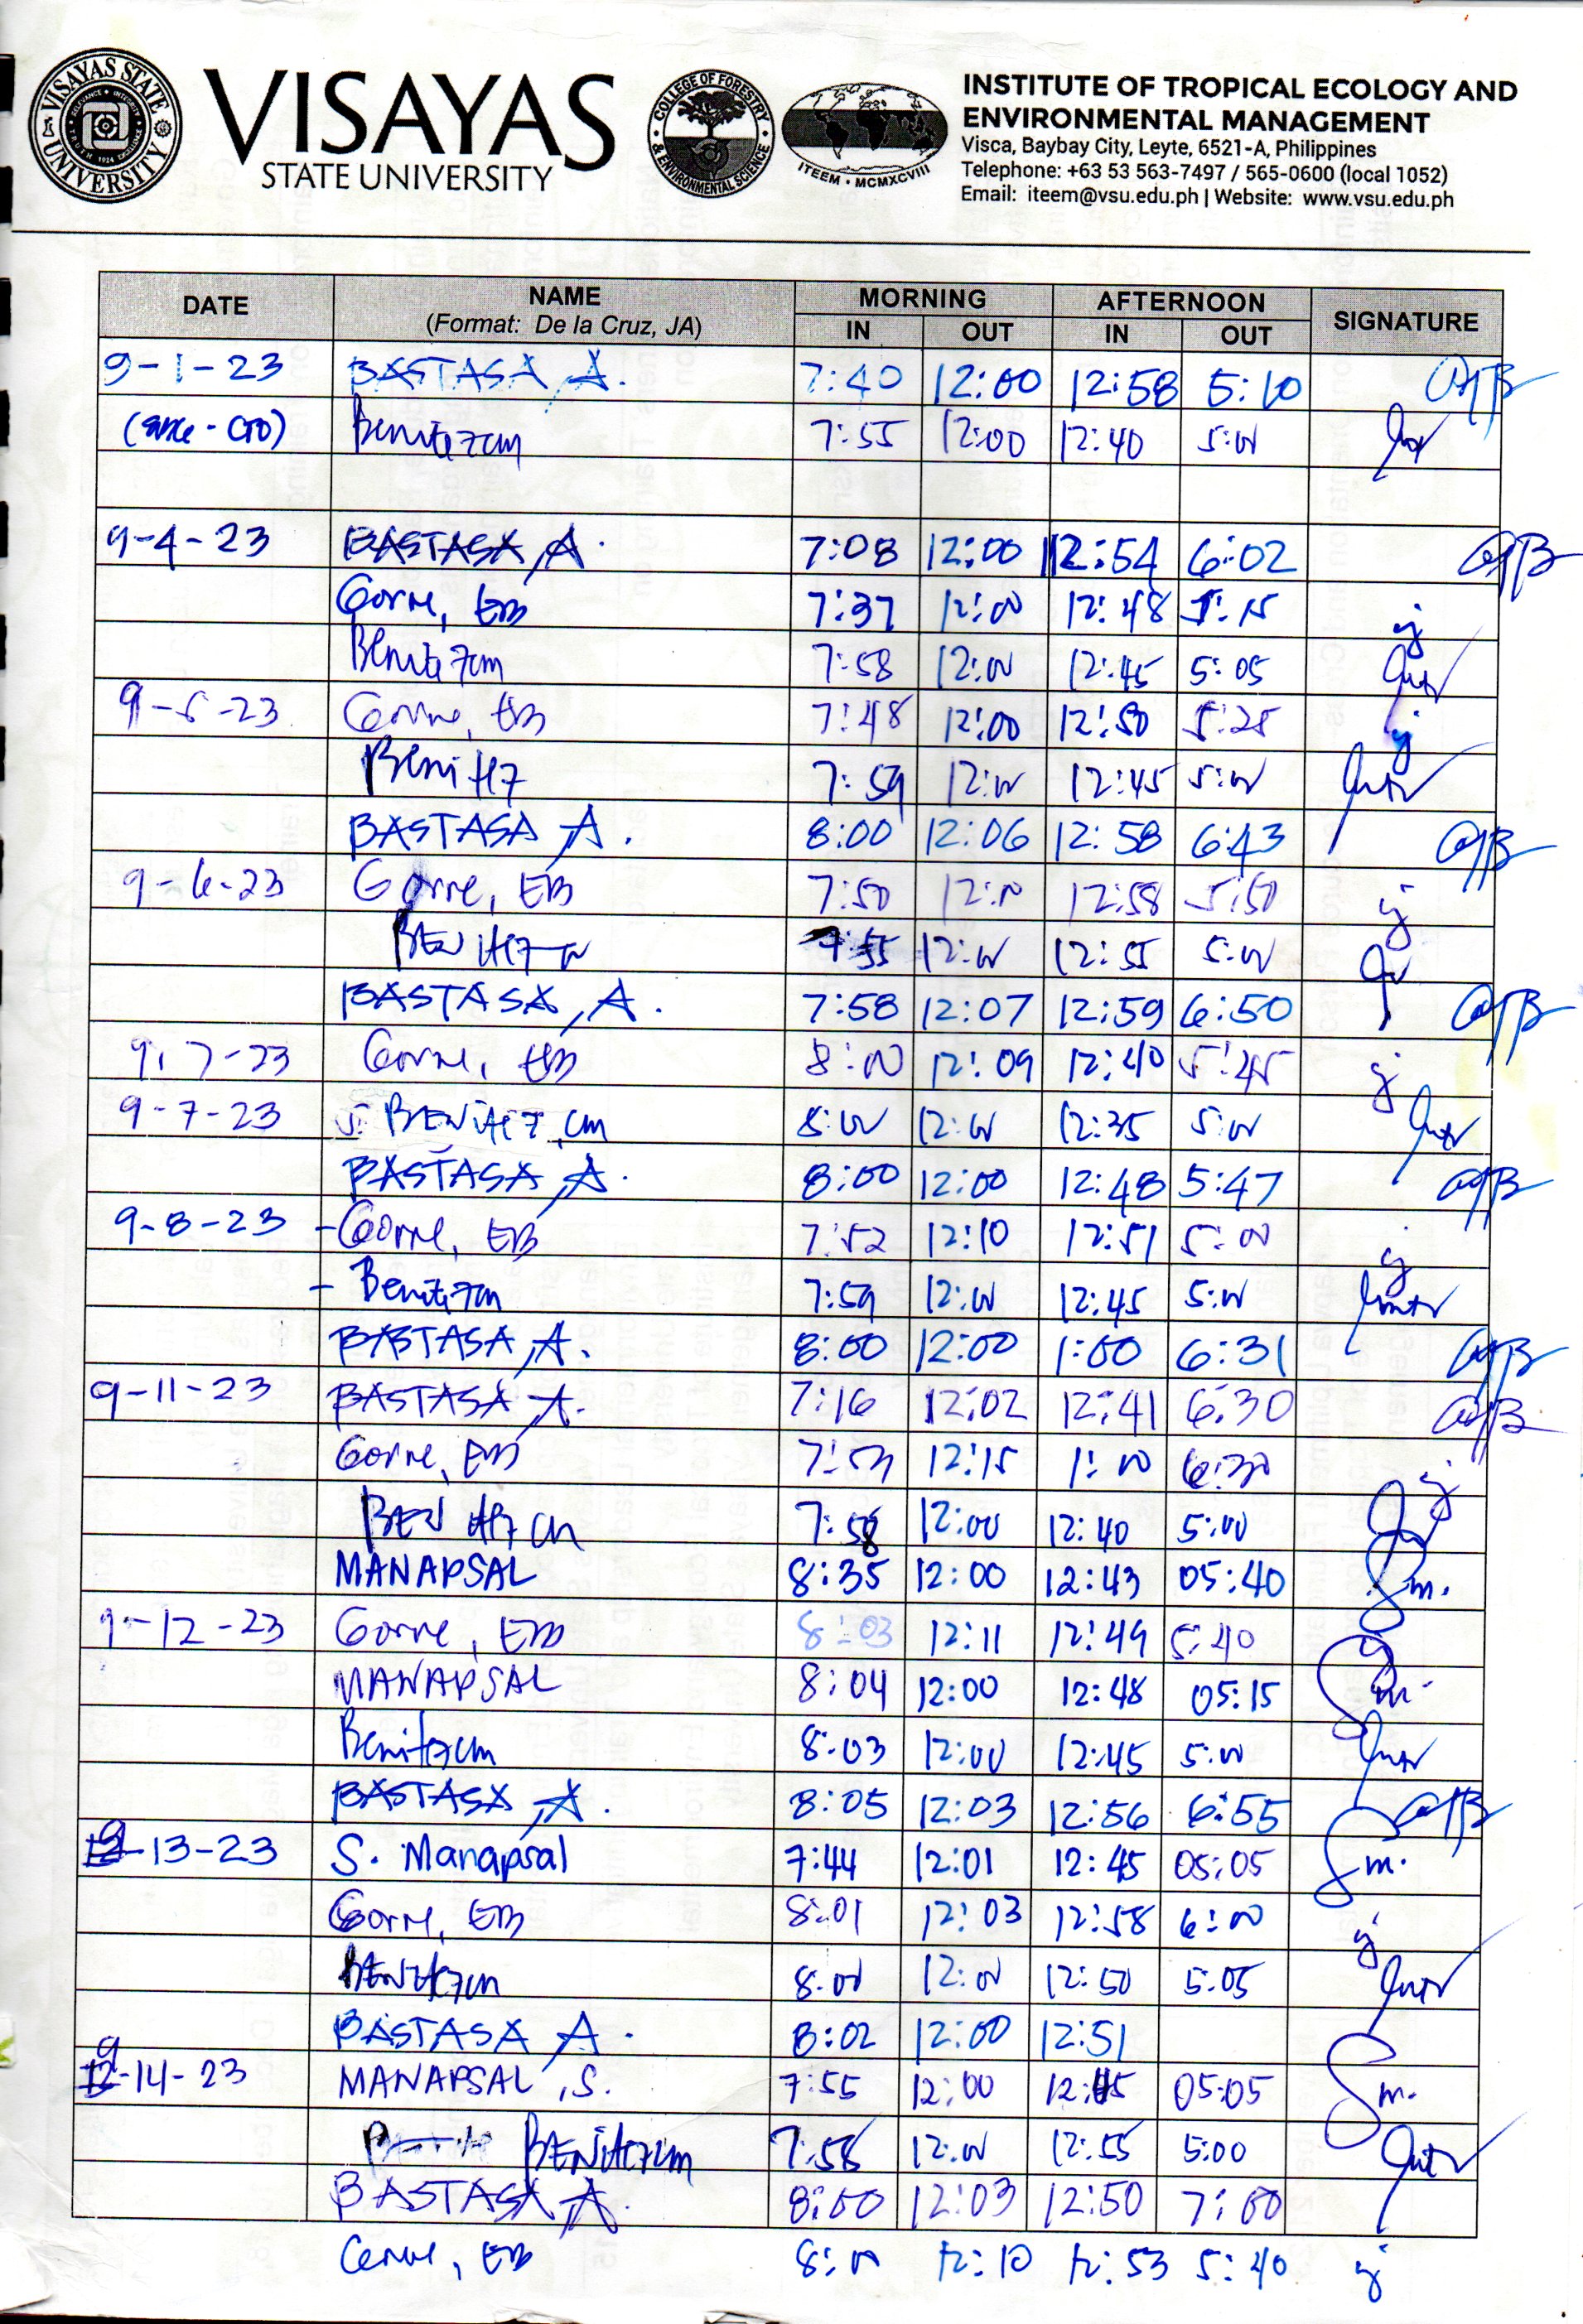 VISAYAS STATE UNIVERSITY
VISAYAS
STATE UNIVERSITY
COLLEGE OF FORESTRY & ENVIRONMENTAL SCIENCE
ITEEM • MCMXCVIII
INSTITUTE OF TROPICAL ECOLOGY AND
ENVIRONMENTAL MANAGEMENT
Visca, Baybay City, Leyte, 6521-A, Philippines
Telephone: +63 53 563-7497 / 565-0600 (local 1052)
Email: iteem@vsu.edu.ph | Website: www.vsu.edu.ph
DATE NAME (Format: De la Cruz, JA) MORNING AFTERNOON SIGNATURE
IN OUT IN OUT
9-1-23 BASTASA, A. 7:40 12:00 12:58 5:10
Benitez cm 7:55 12:00 12:40 5:00
9-4-23 BASTASA, A. 7:08 12:00 12:54 6:02
Gorne, EB 7:37 12:00 12:48 5:15
Benitez cm 7:58 12:00 12:45 5:05
9-5-23 Gorne, EB 7:48 12:00 12:50 5:25
Benitez 7:59 12:00 12:45 5:00
BASTASA, A. 8:00 12:06 12:58 6:43
9-6-23 Gorne, EB 7:50 12:10 12:58 5:50
BENITEZ 7:55 12:00 12:55 5:00
BASTASA, A. 7:58 12:07 12:59 6:50
9-7-23 Gorne, EB 8:00 12:09 12:40 5:45
9-7-23 BENITEZ, cm 8:00 12:00 12:35 5:00
BASTASA, A. 8:00 12:00 12:48 5:47
9-8-23 - Gorne, EB 7:52 12:10 12:51 5:00
- Benitez cm 7:59 12:00 12:45 5:00
BASTASA, A. 8:00 12:00 1:00 6:31
9-11-23 BASTASA A. 7:16 12:02 12:41 6:30
Gorne, EB 12:15 1:00 6:30
BENITEZ cm 7:58 12:00 12:40 5:00
MANAPSAL 8:35 12:00 12:43 05:40
9-12-23 Gorne, EB 8:03 12:11 12:49 5:40
MANAPSAL 8:04 12:00 12:48 05:15
Benitez cm 8:03 12:00 12:45 5:00
BASTASA, A. 8:05 12:03 12:56 6:55
9-13-23 S. Manapsal 7:44 12:01 12:45 05:05
Gorne, EB 8:01 12:03 12:58 6:00
BENITEZ cm 8:00 12:00 12:50 5:05
BASTASA A. 8:02 12:00 12:51
9-14-23 MANAPSAL, S. 7:55 12:00 12:45 05:05
BENITEZ cm 7:58 12:00 12:55 5:00
BASTASA, A. 8:00 12:03 12:50 7:00
Gorne, EB 8:00 12:10 12:53 5:40